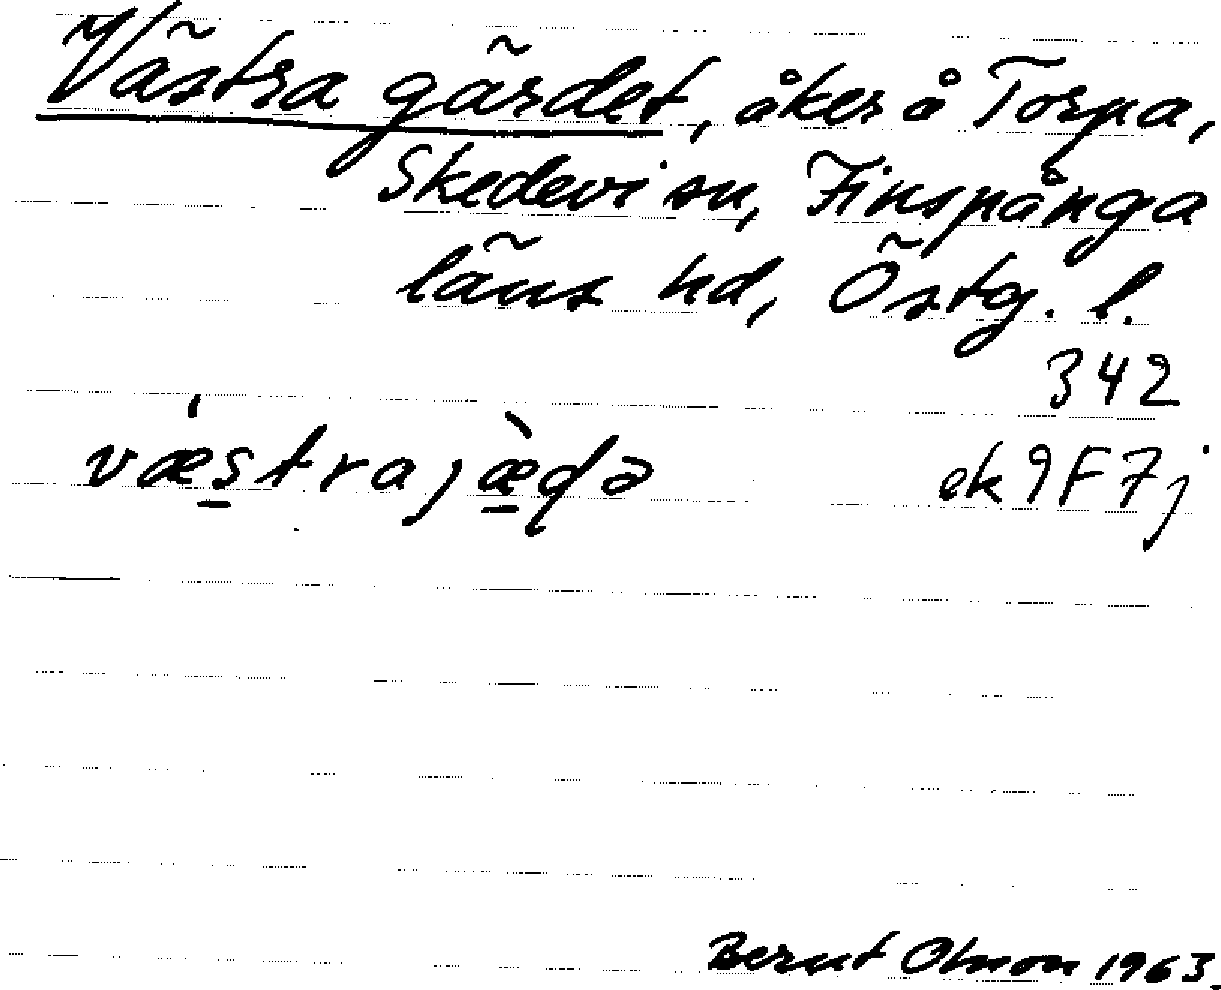 Västra gärdet, åker å Torpa,
Skedevi sn, Finspånga
läns hd, Östg. l.
342
væstrajæɖə ek 9F7j
Bernt Olsson 1963.